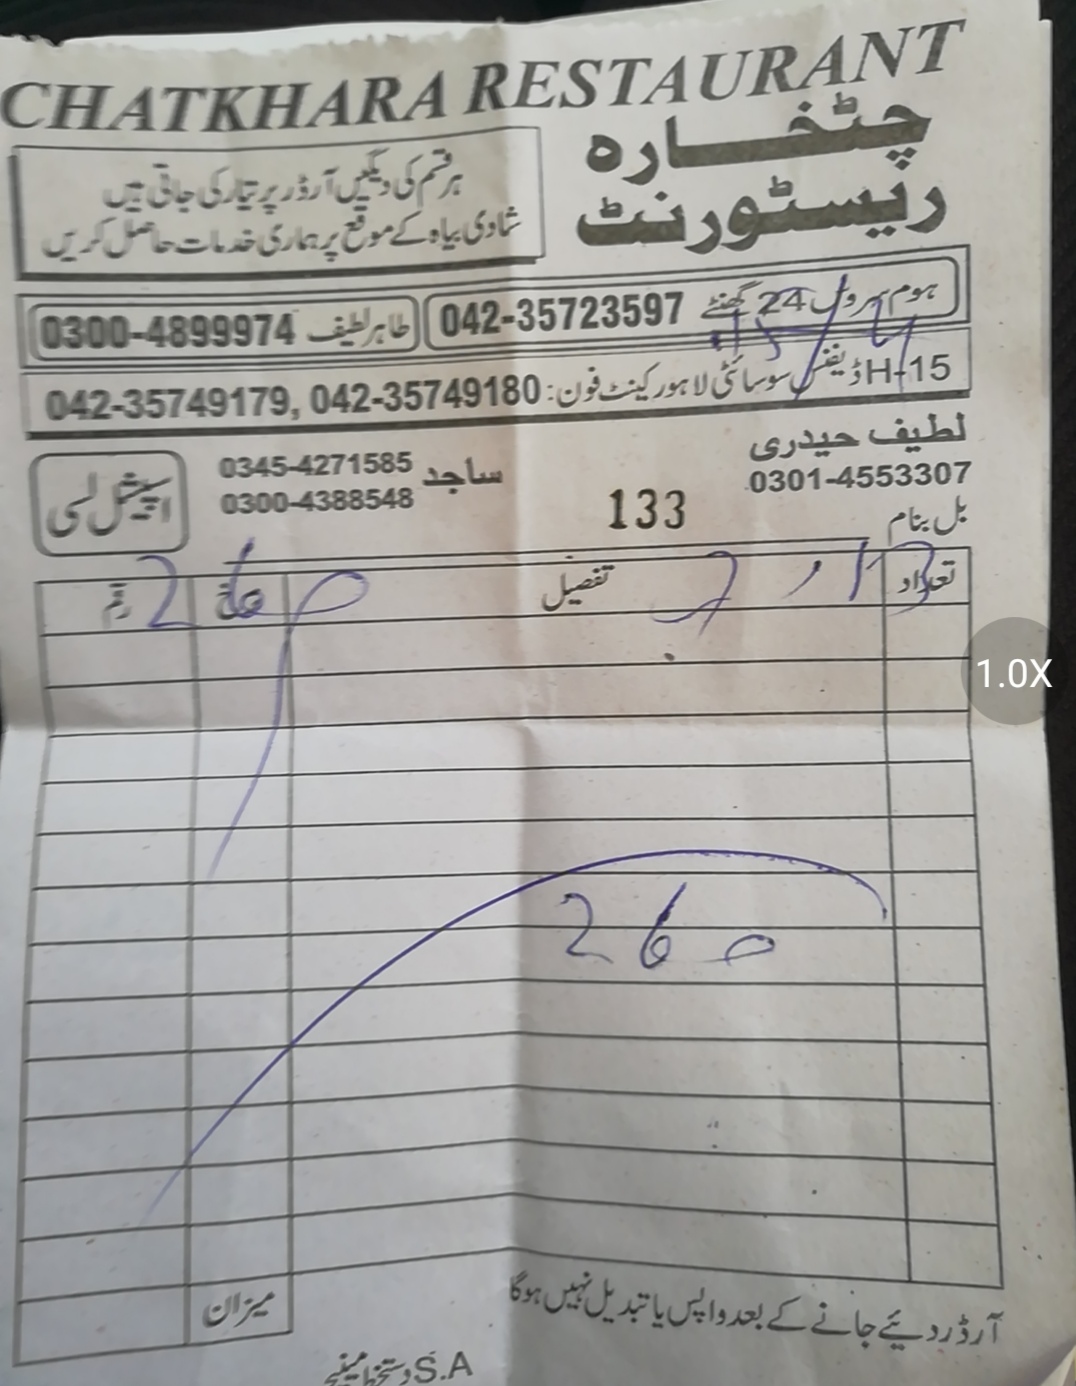 CHATKHARA RESTAURANT
چٹخارہ
ریسٹورنٹ
ہر قسم کی دیگیں آرڈر پر تیار کی جاتی ہیں
شادی بیاہ کے موقع پر ہماری خدمات حاصل کریں
ہوم سروس 24 گھنٹے 042-35723597
طاہر لطیف 0300-4899974
H-15 ڈیفنس سوسائٹی لاہور کینٹ فون: 042-35749179, 042-35749180
لطیف حیدری
0301-4553307
ساجد 0345-4271585
0300-4388548
اسپیشل لسی
133
بل بنام
تعداد تفصیل رقم
260
260
میزان
آرڈر دئیے جانے کے بعد واپس یا تبدیل نہیں ہوگا
S.A
1.0X